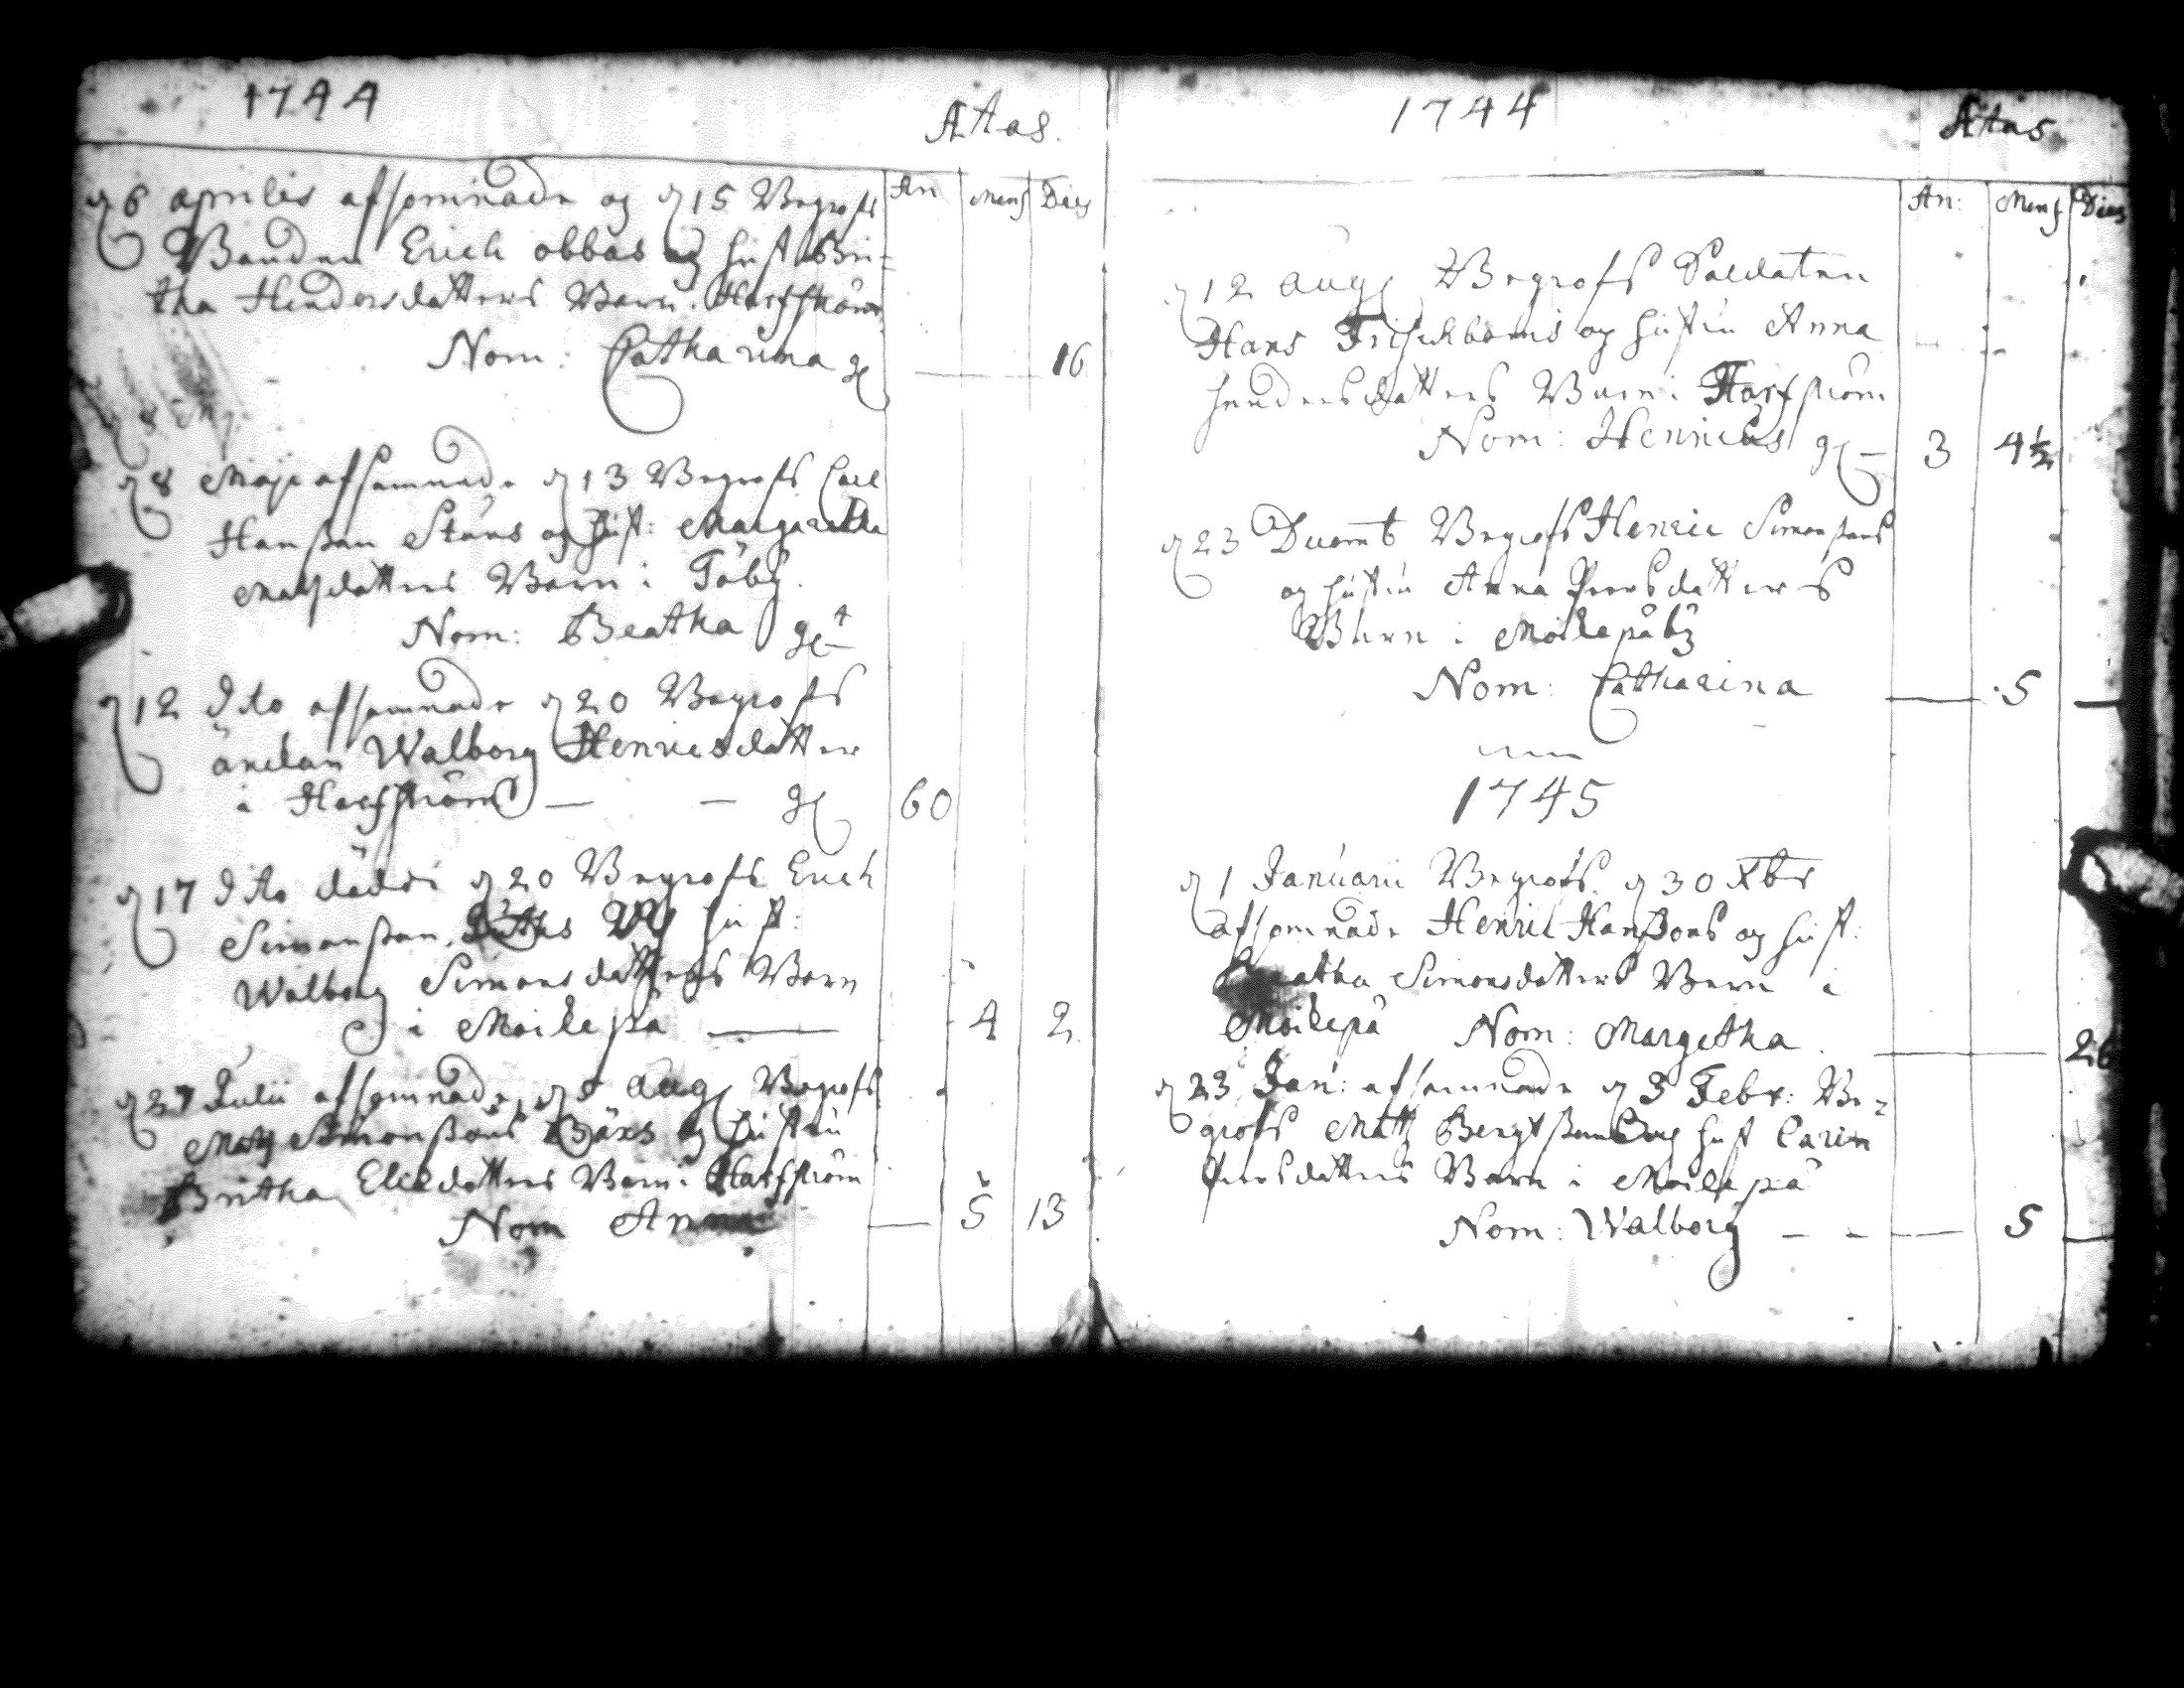 1744
Ætas.
An Mens Dies
d 6 aprilis afsomnade og d 15 Begrofs
Bonden Erich obbas og hust Bri=
tha Hindersdatters Barn i Harfström
Nom: Catharina 16
d 8 Maji afsomnade d 13 Begrofs Carl
Hansson Ståns og Hust: Margaretha
Matsdatters Barn i Töby.
Nom: Beatha
d 12 Dito afsomnade d 20 Begrofs
änckan Walborg Henricsdatter
i Harfström — — 60
d 17 Dito dödde d 20 Begrofs Erich
Simonsson hust:
Walborg Simonsdatters Barn
i Moikepä — 4 2
d 27 Julii afsomnade, d 5 Aug Begrofs
Mats Simonssons Bäcks og Hustru
Britha Elisdatters Barn i Harfström
Nom Anna — 5 13
1744
Ætas
An: Mens Dies
d 12 Aug Begrofs Soldaten
Hans og hustru Anna
hendersdatters Barn i Harfström
Nom: Henricus — 3 4½
d 23 Decemb Begrofs Henric Simonssons
og hustru Anna Persdatters
Barn i Moikepäby
Nom: Catharina — 5 —
1745
d 1 Januarii Begrofs. d 30 Xbr
afsomnade Henric Hanssons og hust:
Beatha Simonsdatters Barn i
Moikepä Nom: Margetha. 26
d 23 Jan: afsomnade d 3 Febr: Be=
grofs Matts Bengtssons og hust Carin
Persdatters Barn i Moikepä
Nom: Walborg — — — 5 —